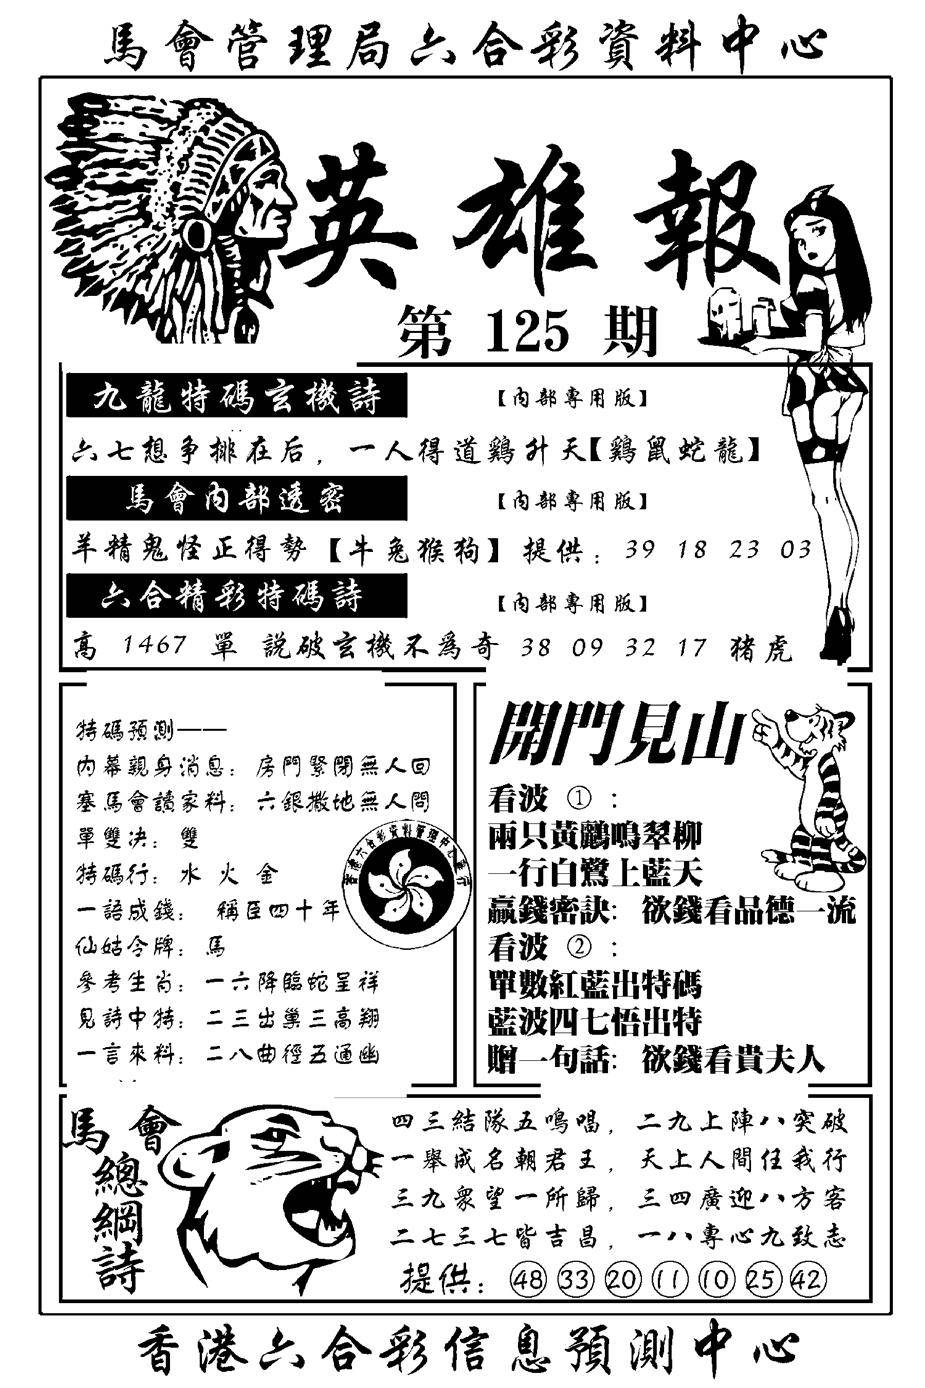 馬會管理局六合彩資料中心
英雄報
第 125 期
九龍特碼玄機詩 【內部專用版】
六七想争排在后，一人得道鷄升天【鷄鼠蛇龍】
馬會內部透密 【內部專用版】
羊精鬼怪正得勢【牛兔猴狗】 提供：39 18 23 03
六合精彩特碼詩 【內部專用版】
高 1467 單 説破玄機不爲奇 38 09 32 17 猪虎
特碼預測——
内幕親身消息：房門緊閉無人回
塞馬會讀家料：六銀撒地無人問
單雙决：雙
特碼行：水 火 金
一語成錢： 稱臣四十年
仙姑令牌：馬
參考生肖：一六降臨蛇呈祥
見詩中特：二三出巢三高翔
一言來料：二八曲徑五通幽
開門見山
看波 ①：
兩只黄鸝鳴翠柳
一行白鷺上藍天
贏錢密訣：欲錢看品德一流
看波 ②：
單數紅藍出特碼
藍波四七悟出特
贈一句話：欲錢看貴夫人
馬會
總綱詩
四三結隊五鳴唱，二九上陣八突破
一舉成名朝君王，天上人間任我行
三九衆望一所歸，三四廣迎八方客
二七三七皆吉昌，一八專心九致志
提供：48 33 20 11 10 25 42
香港六合彩信息預測中心